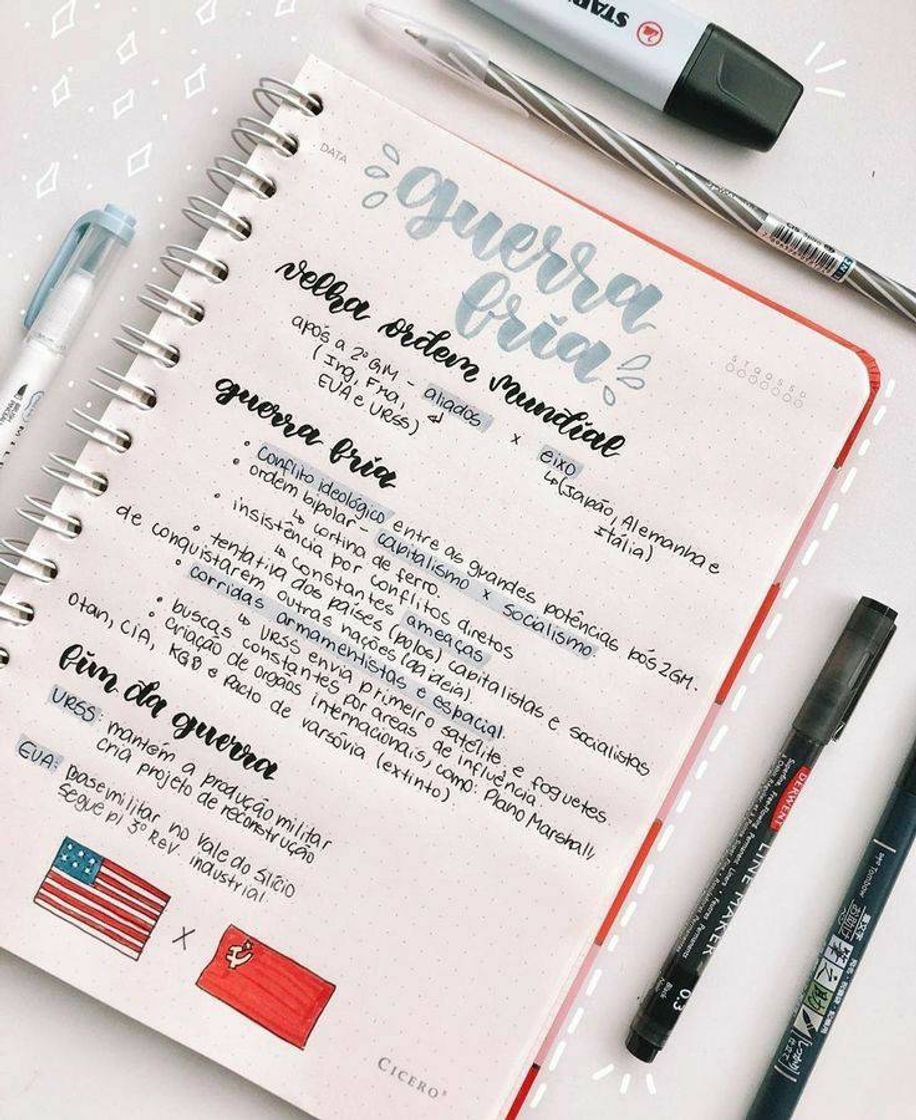 STABILO
DATA
guerra
fria
S T Q Q S S D
velha ordem mundial
após a 2º GM - aliados x eixo
(Ing, Fra,
EUA e URSS)
↳(Japão, Alemanha e
Itália)
guerra fria
• Conflito ideológico entre as grandes potências pós 2GM.
• ordem bipolar - capitalismo x socialismo.
↳ cortina de ferro.
• insistência por conflitos diretos
↳ constantes ameaças
• tentativa dos países (polos) capitalistas e socialistas
de conquistarem outras nações (da ideia)
• corridas armamentistas e espacial.
↳ URSS envia primeiro satélite, e foguetes.
• buscas constantes por áreas de influência
• criação de órgãos internacionais, como: Plano Marshall
Otan, CIA, KGB e Pacto de varsóvia (extinto)
fim da guerra
URSS: mantém a produção militar
cria projeto de reconstrução
EUA: Base militar no Vale do Silício
segue p/ 3º Rev. industrial.
X
CICERO
DERWENT
LINE MAKER
0.3
Black
Tombow